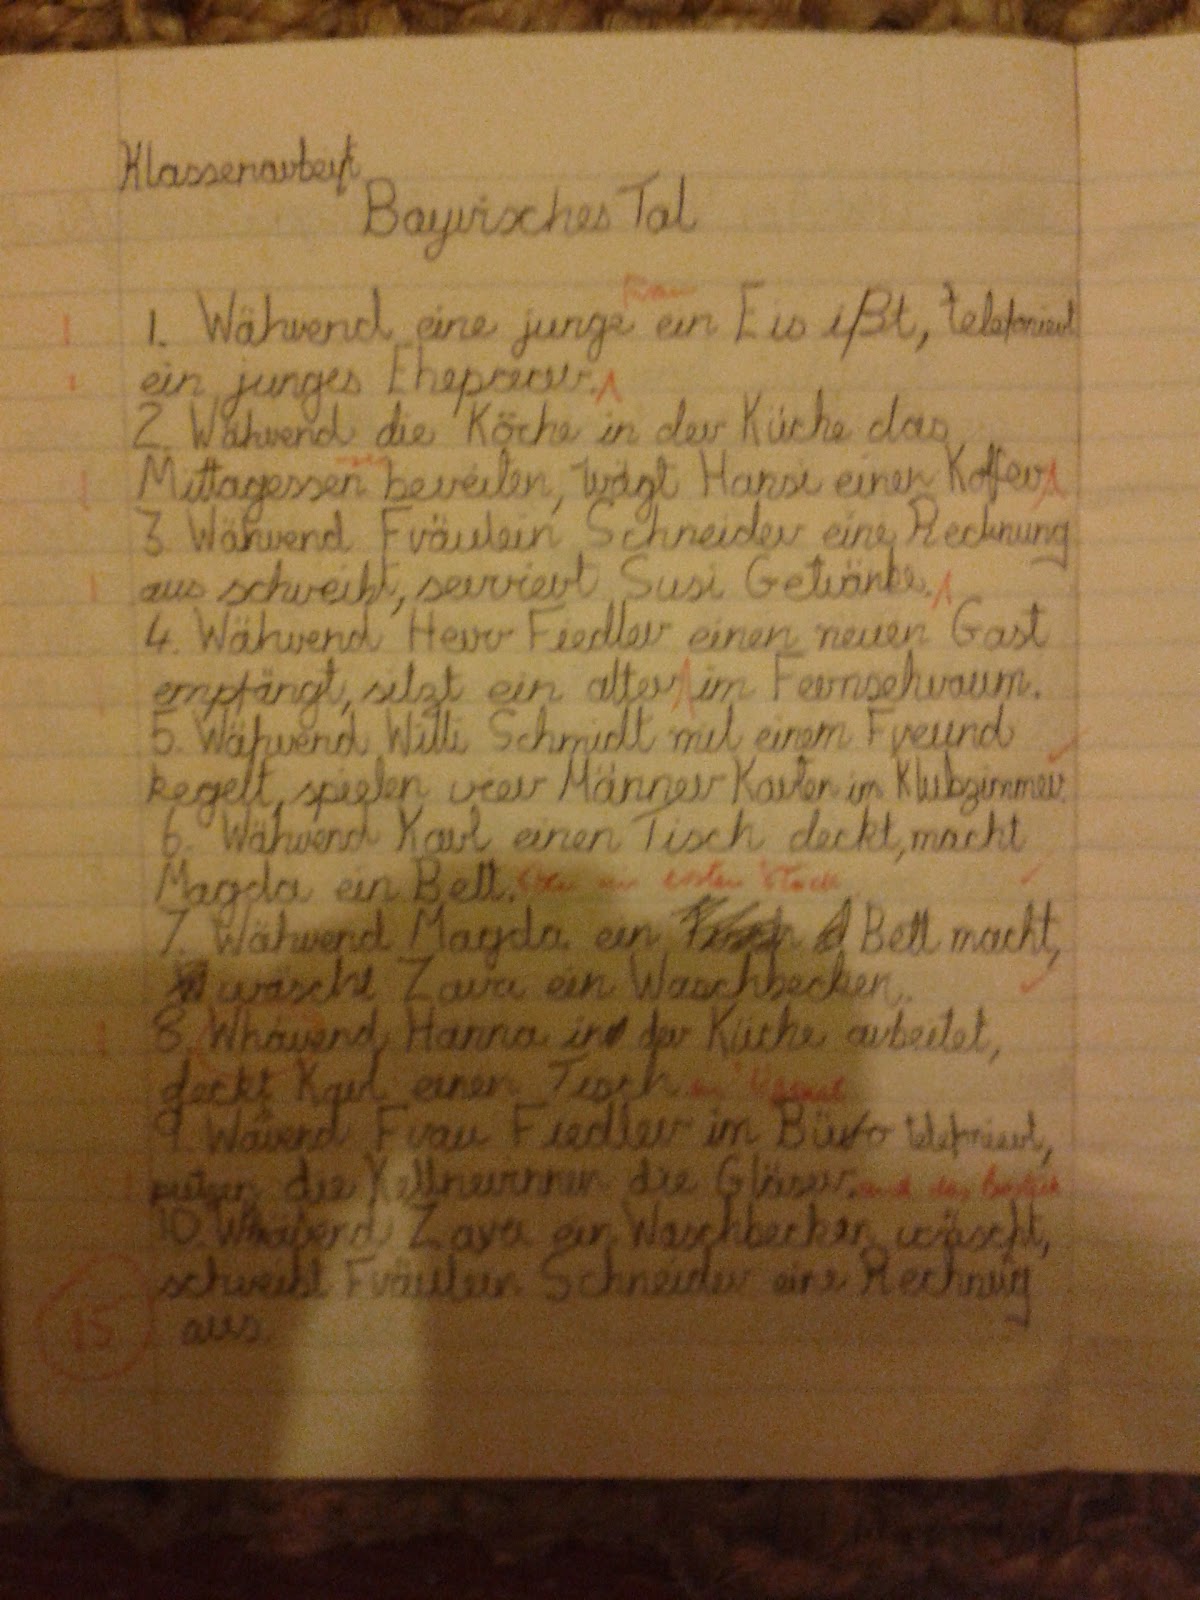 Klassenarbeit
Bayrisches Tal
Frau
1. Während eine junge ein Eis ißt, telefoniert
ein junges Ehepaar.
2. Während die Köche in der Küche das
Mittagessen bereiten, trägt Hansi einen Koffer
3. Während Fräulein Schneider eine Rechnung
aus schreibt, serviert Susi Getränke.
4. Während Herr Fiedler einen neuen Gast
empfängt, sitzt ein alter im Fernsehraum.
5. Während Willi Schmidt mit einem Freund
kegelt, spielen vier Männer Karten im Klubzimmer.
6. Während Karl einen Tisch deckt, macht
Magda ein Bett. ersten Stock
7. Während Magda ein Bett macht,
wäscht Zara ein Waschbecken.
8. Whärend Hanna in der Küche arbeitet,
deckt Karl einen Tisch
9. Wärend Frau Fiedler im Büro telefoniert,
putzen die Kellnerinnen die Gläser. und das Besteck
10. Whärend Zara ein Waschbecken wäscht,
schreibt Fräulein Schneider eine Rechnug
15 aus.